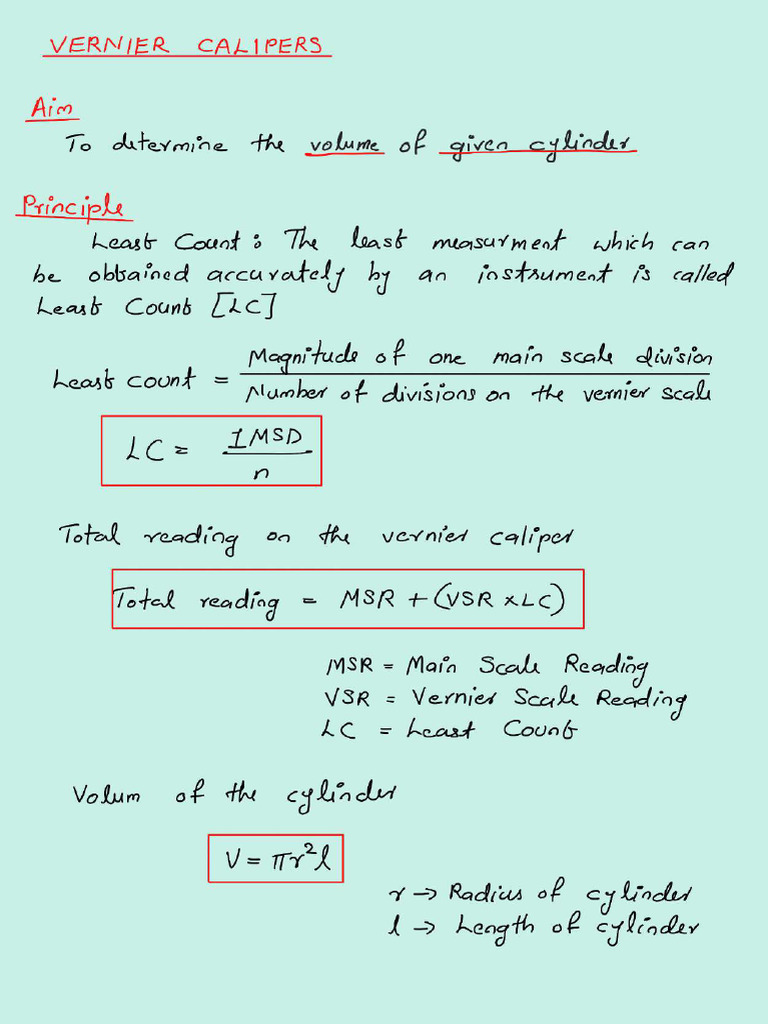 VERNIER CALIPERS
Aim
To determine the volume of given cylinder
Principle
Least Count : The least measurment which can
be obtained accurately by an instrument is called
Least Count [LC]
Least count = Magnitude of one main scale division / Number of divisions on the vernier scale
LC = 1MSD / n
Total reading on the vernier caliper
Total reading = MSR + (VSR × LC)
MSR = Main Scale Reading
VSR = Vernier Scale Reading
LC = Least Count
Volum of the cylinder
V = πr²l
r → Radius of cylinder
l → Length of cylinder